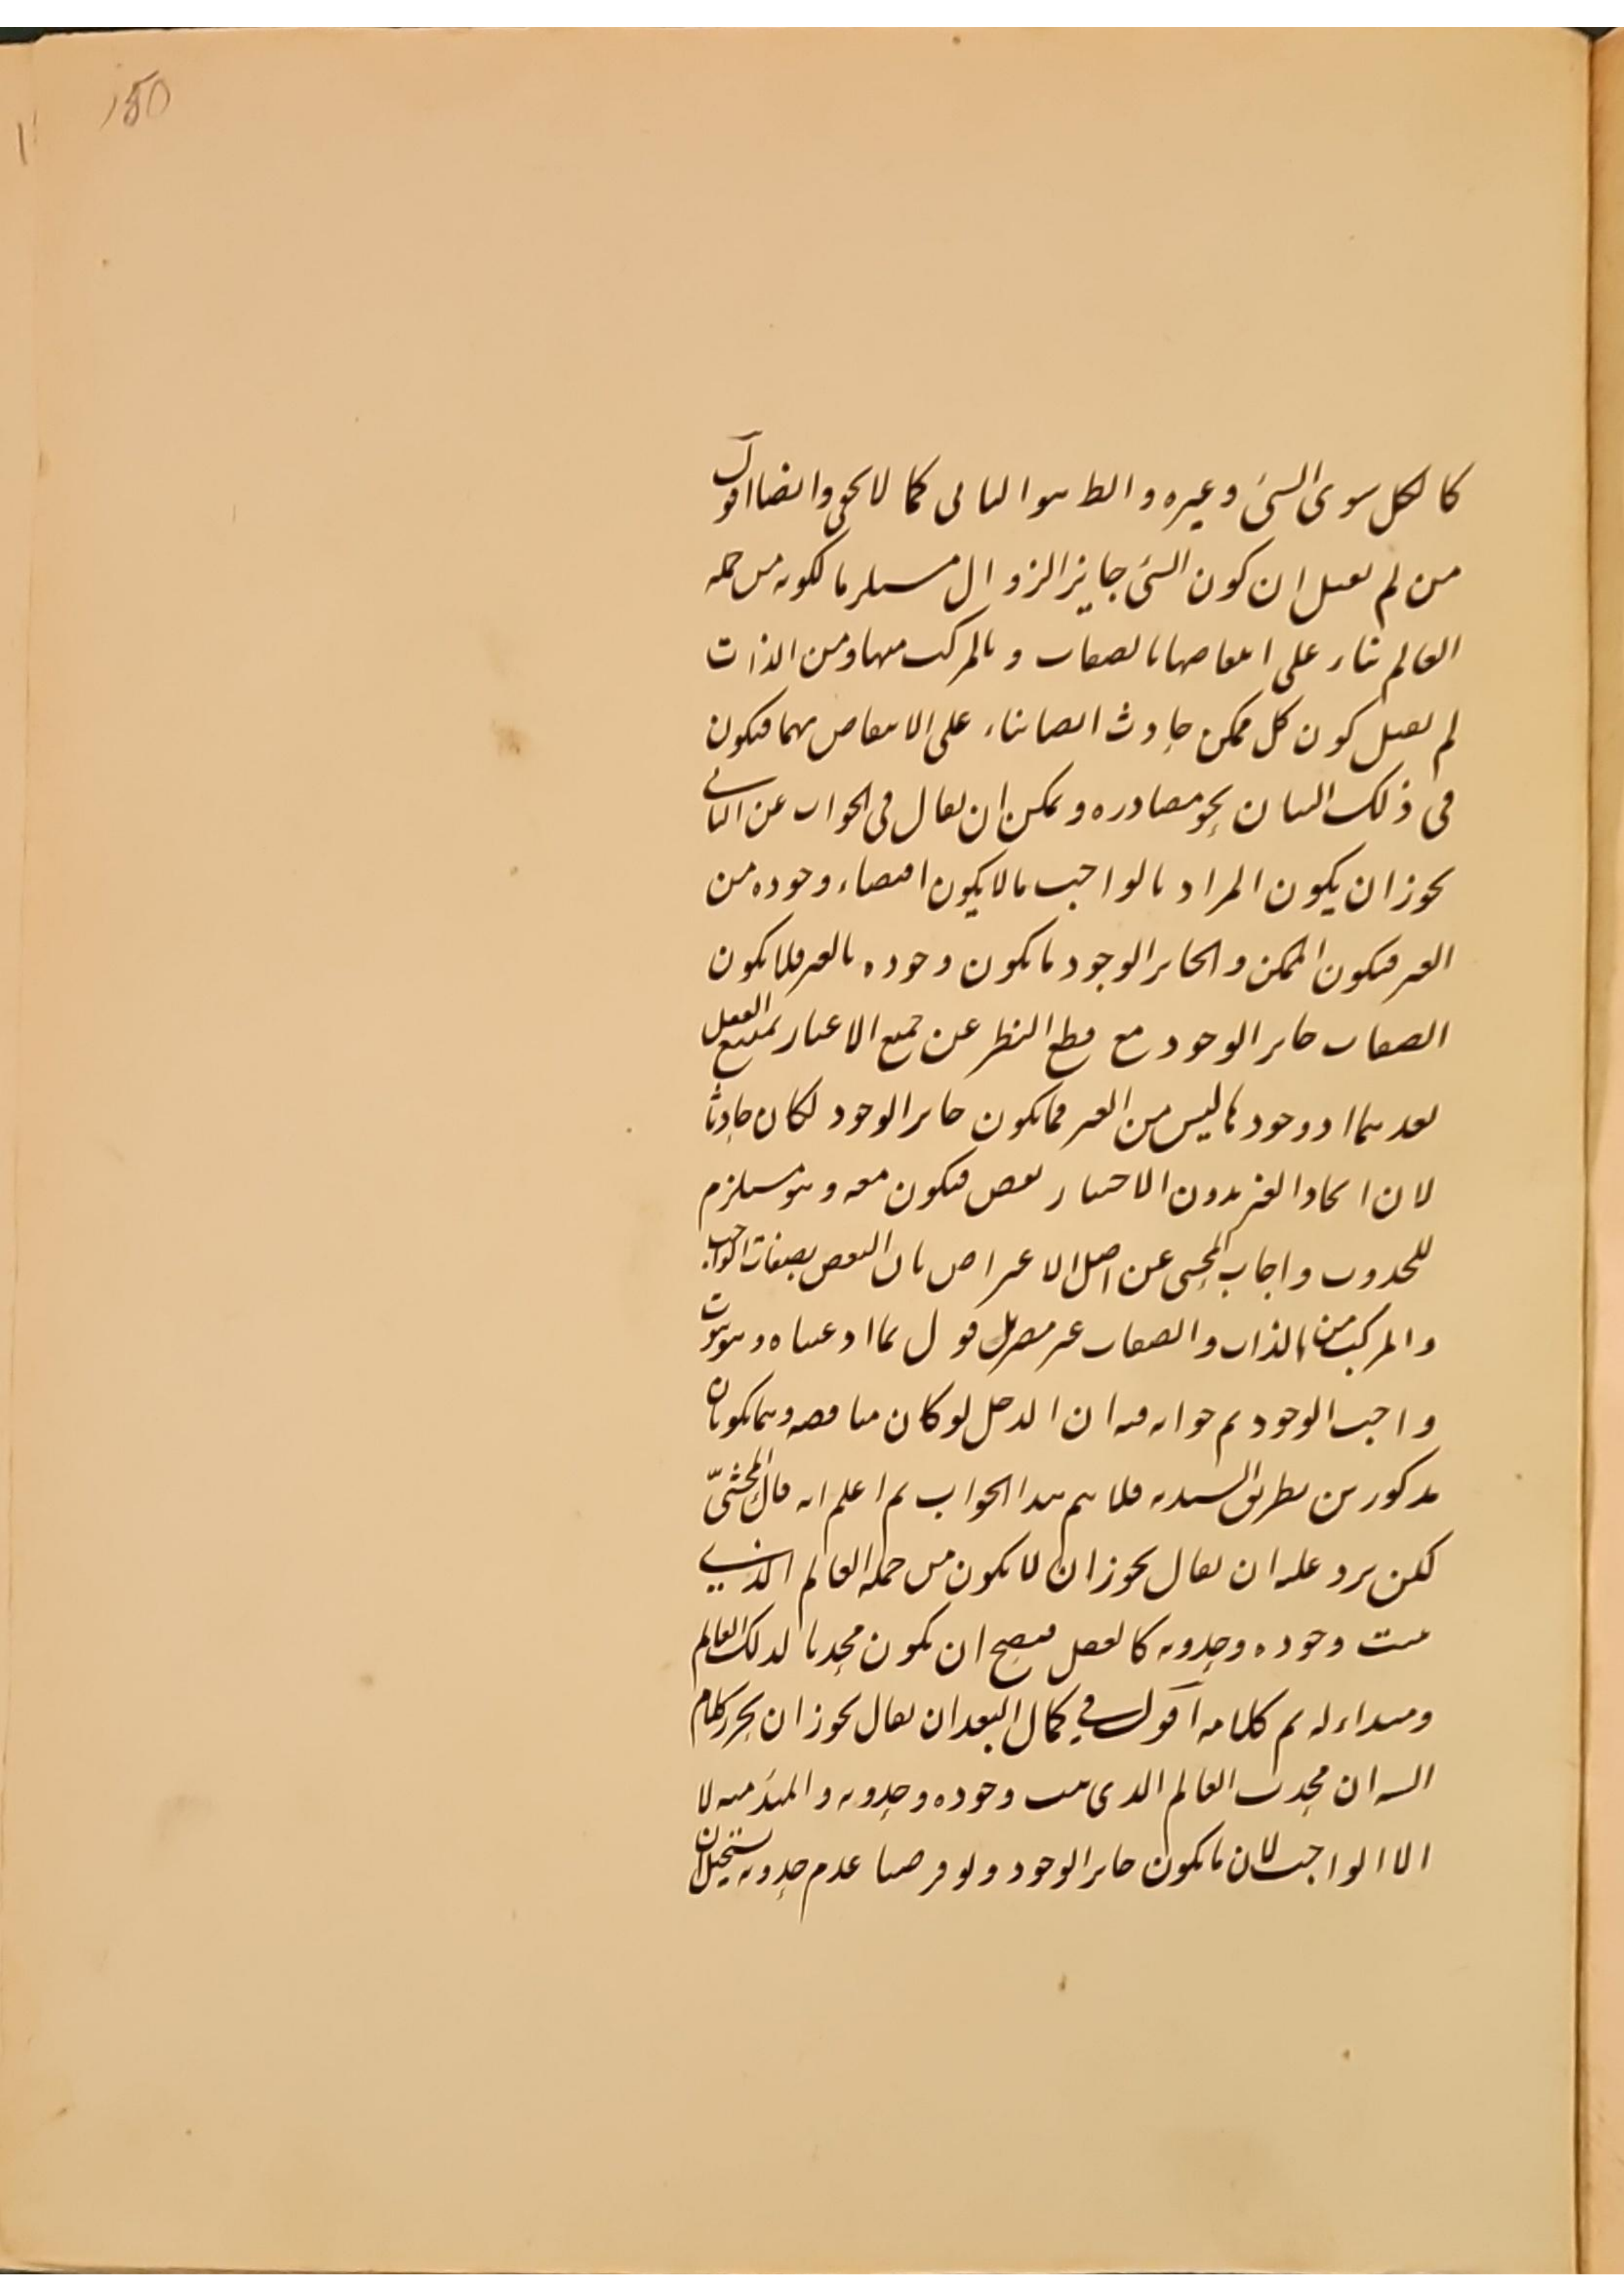 150
كالكل سوى الشئ وغيره والظ هو الثانى كما لا يخفى وايضا اقول
من لم يقبل ان كون الشئ جايز الزوال مستلزما لكونه من جملة
العالم بناء على انتقاضها بالصفات وبالمركب منها ومن الذات
لم يقبل كون كل ممكن حادث ايضا بناء على الانتقاض بهما فيكون
فى ذلك البيان نحو مصادره ويمكن ان يقال فى الجواب عن الثانى
يجوز ان يكون المراد بالواجب ما لا يكون اقتضاء وجوده من
الغير فيكون الممكن والجايز الوجود ما يكون وجوده بالغير فلا يكون
الصفات جايز الوجود مع قطع النظر عن جميع الاعتبار يمتنع العقل
بعدهما اذ وجودها ليس من الغير فما يكون جايز الوجود لكان حادثا
لان ايجاد الغير بدون الاختيار نقص فيكون معه وهو مستلزم
للحدوث واجاب المحشى عن اصل الاعتراض بان النقض بصفات الواجب
والمركب من الذات والصفات غير مضر بل قول بما ادعيناه وهو ثبوت
واجب الوجود تم جوابه فيه ان الدخل لو كان مناقضه وهما يكونان
مذكورين بطريق السنديه فلا يتم هذا الجواب ثم اعلم انه قال المحشىّ
لكن يرد عليه ان يقال يجوز ان لا يكون من جملة العالم الذى
ثبت وجوده وحدوثه كالعقل فيصح ان يكون محدثا لذلك العالم
ومبداء له تم كلامه اقول فى كمال البعد ان يقال يجوز ان يحرر كلام
الشه ان محدث العالم الذى ثبت وجوده وحدوثه والمبدئيه لا
الا الواجب لان ما يكون جايز الوجود ولو فرضنا عدم حدوثه يستحيل ان